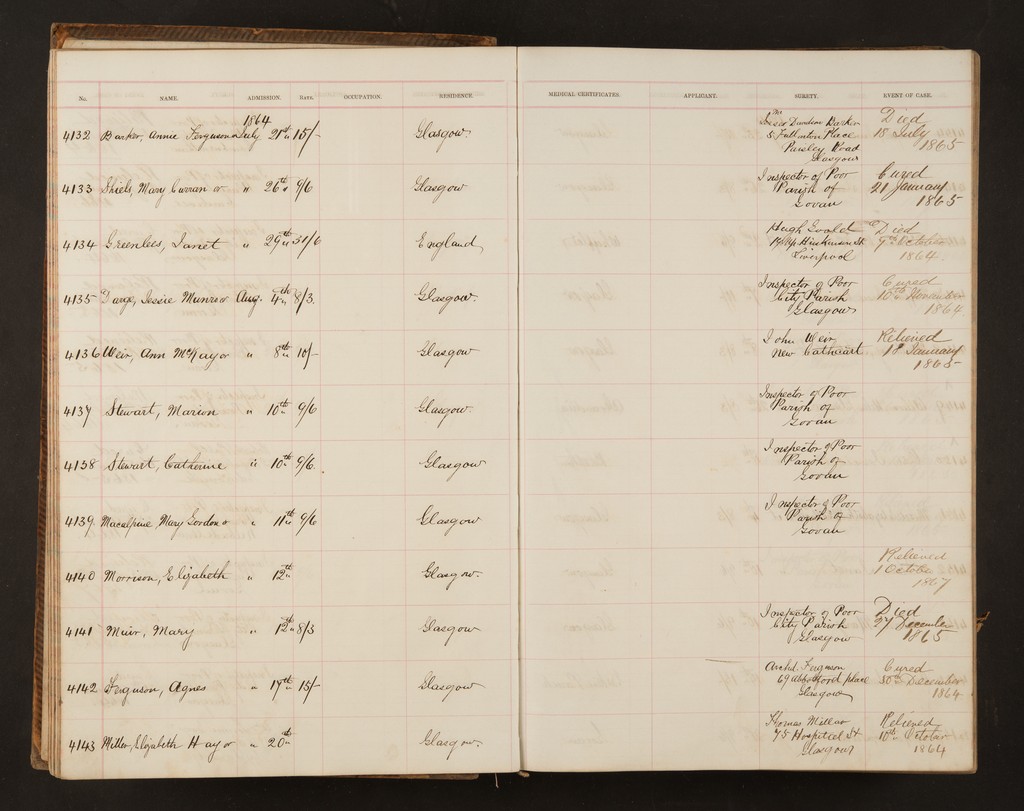 No. NAME. ADMISSION. RATE. OCCUPATION. RESIDENCE. MEDICAL CERTIFICATES. APPLICANT. SURETY. EVENT OF CASE.
1864
4132 Barker, Annie Ferguson or July 21st 15/- Glasgow. Place Died
Paisley Road 18 July
Glasgow 1865
4133 Shiels, Mary Curran or " 26th 9/6 Glasgow Inspector of Poor Cured
Parish of 21 January
Govan 1865
4134 Greenlees, Janet " 29th 31/6 England, Hugh Died
Liverpool 9th October
1864
4135 Jessie Munro or Aug. 4th 8/3 Glasgow. Inspector of Poor Cured
City Parish 10th November
Glasgow 1864
4136 Weir, Ann McKay or " 8th 10/- Glasgow John Weir Relieved
New Cathcart 18 January
1865
4137 Stewart, Marion " 10th 9/6 Glasgow. Inspector of Poor
Parish of
Govan
4138 Stewart, Catherine " 10th 9/6. Glasgow Inspector of Poor
Parish of
Govan
4139. Macalpine, Mary Gordon or " 11th 9/6 Glasgow Inspector of Poor
Parish of
Govan
4140 Morrison, Elizabeth " 12th Glasgow. Relieved
1 October
1867
4141 Muir, Mary " 12th 8/3 Glasgow Inspector of Poor Died
City Parish 27 December
Glasgow 1865
4142 Ferguson, Agnes " 17th 15/- Glasgow Archd. Ferguson Cured
69 Abbotsford place 30th December
Glasgow 1864
4143 Miller, Elizabeth Hay or " 20th Glasgow. Thomas Millar Relieved
75 Hospital St 10th October
Glasgow 1864